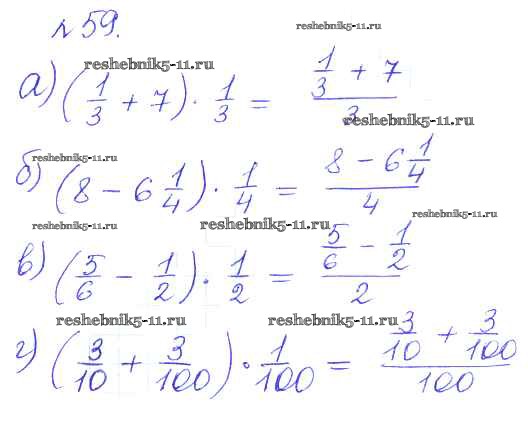 № 59.
reshebnik5-11.ru
reshebnik5-11.ru
а) (1/3 + 7) · 1/3 = (1/3 + 7)/3
reshebnik5-11.ru
reshebnik5-11.ru
б) (8 − 6 1/4) · 1/4 = (8 − 6 1/4)/4
reshebnik5-11.ru
reshebnik5-11.ru
reshebnik5-11.ru
в) (5/6 − 1/2) · 1/2 = (5/6 − 1/2)/2
reshebnik5-11.ru
reshebnik5-11.ru
г) (3/10 + 3/100) · 1/100 = (3/10 + 3/100)/100